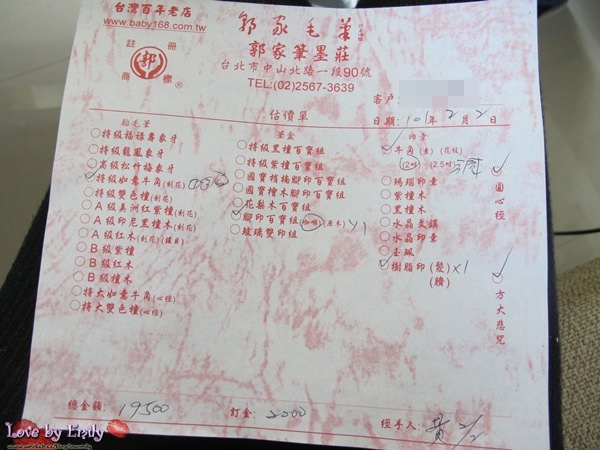 台灣百年老店
www.baby168.com.tw
註冊
商標
郭
®
郭家毛筆
郭家筆墨莊
台北市中山北路一段90號
TEL:(02)2567-3639
客戶:
估價單
日期: 101年 2月 2日
胎毛筆
特級福祿壽象牙
特級龍鳳象牙
高級松竹梅象牙
特級如意牛角(刻花)
特級雙色檀(刻花)
A級美洲紅紫檀(刻花)
A級印尼黑檀木(刻花)
A級紅木(刻花)(鑲貝)
B級紫檀
B級紅木
B級檀木
特大如意牛角(心經)
特大雙色檀(心經)
筆盒
特級黑檀百寶組
特級紫檀百寶組
國寶梢楠腳印百寶組
國寶檜木腳印百寶組
花梨木百寶組
腳印百寶組(咖啡)(原木) x1
玻璃雙印組
印章
牛角(素)(花紋)
(12吋)(2.5吋)
瑪瑙印章
紫檀木
黑檀木
水晶文鎮
水晶印章
玉珮
樹脂印(髮)x1
(臍)
圓心經
方大悲咒
總金額: 19500
訂金: 2000
經手人: 黃 2/2
Love by Emily